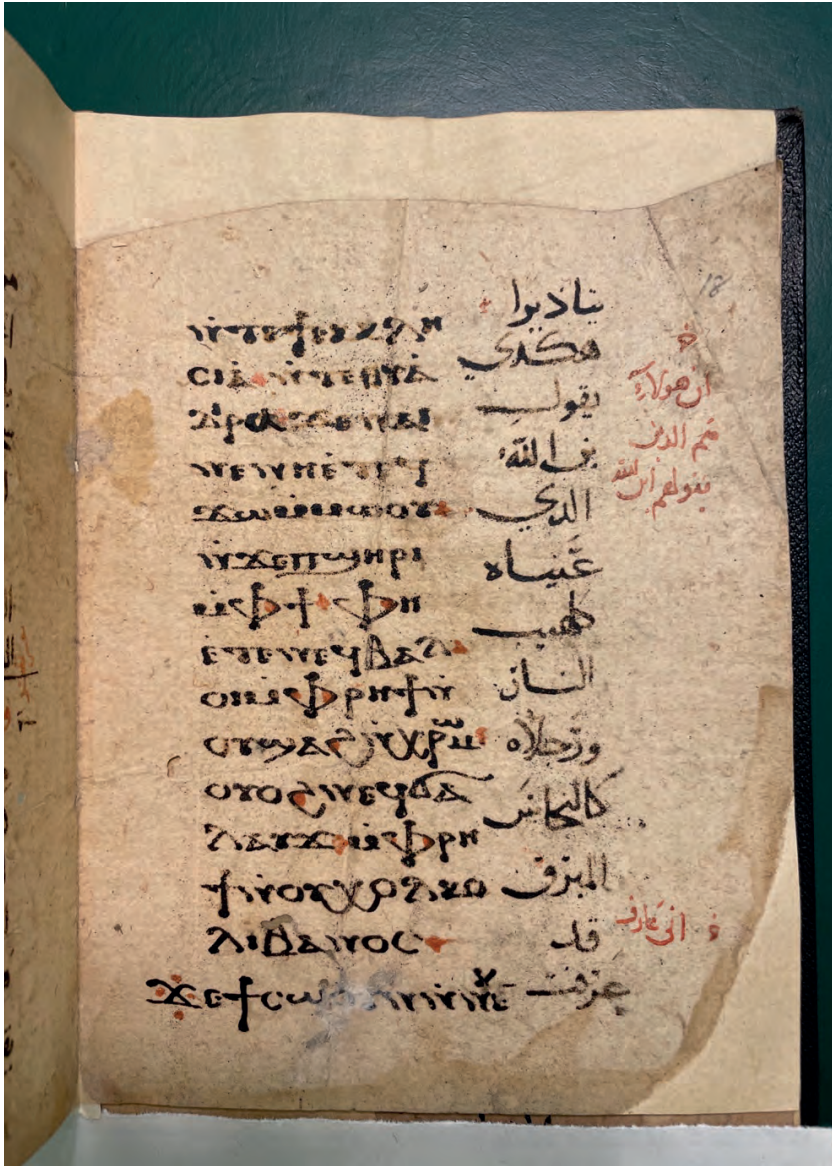 ⲛ̀ⲧⲉϯⲉⲕⲕⲗⲏ
ⲥⲓⲁ ⲛ̀ⲧⲉⲑⲩⲁ
ϫⲉⲛⲁⲓ
ⲛⲉⲛⲏⲉⲧⲉϥ
ϫⲱⲙ̀ⲙⲱⲟⲩ
ⲛ̀ϫⲉⲡϣⲏⲣⲓ
ⲙ̀ⲫϯ ⲫⲏ
ⲉⲧⲉⲛⲉϥⲃⲁⲗ
ⲟⲓⲙ̀ⲫⲣⲏϯⲛ̀
ⲟⲩϣⲁϩⲛ̀ⲭⲣⲱⲙ
ⲟⲩⲟϩⲛⲉϥϭⲁ
ⲗⲁⲩϫⲙ̀ⲫⲣⲏ
ϯⲛ̀ⲟⲩⲭⲁⲗⲕⲟ
ⲗⲓⲃⲁⲛⲟⲥ
ϫⲉϯⲥⲱⲟⲩⲛⲛ̀ⲛⲉⲕ
هكدي
يقول
بن الله
الدي
عنياه
لهيب
النار
ورجلاه
كالنحاس
قد
عرفت
18
ان هولاء
هم الدين
يقولهم ابن الله
اني عارف